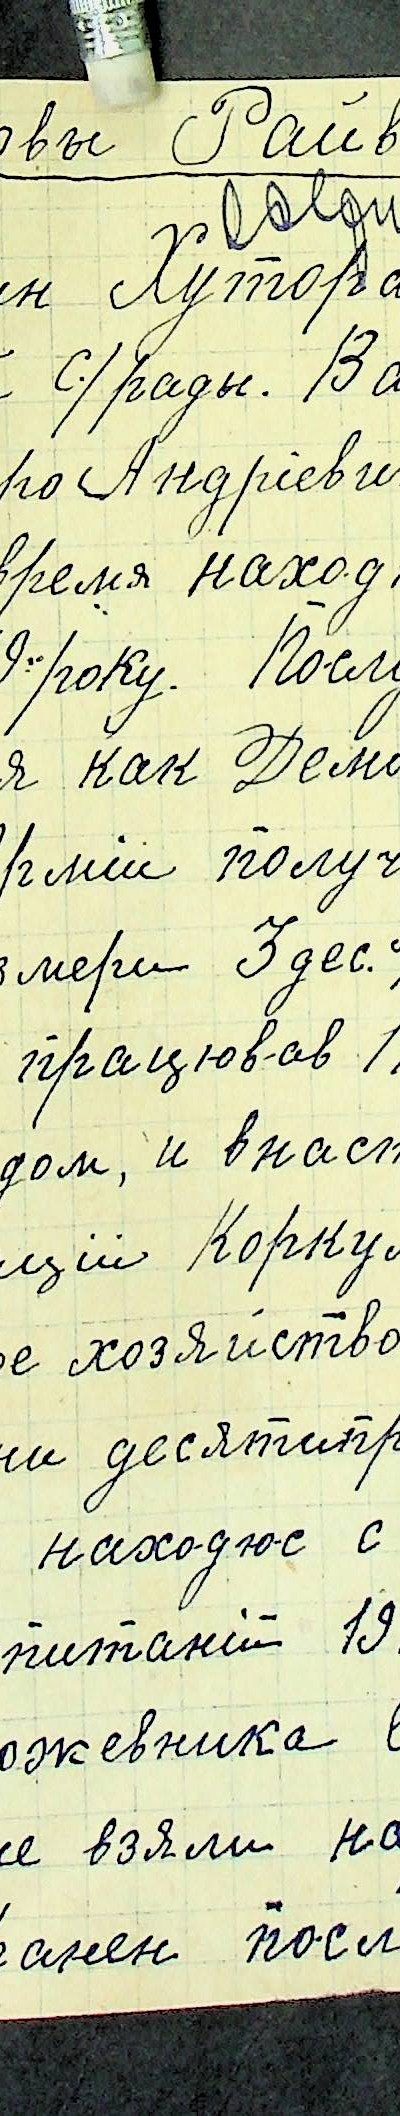 овы Райв
ин Хутора
с/рады. Ва
ро Андріеви
время наход
9 року. Послу
я как Демо
Арміи получ
змери 3 дес.
працював
дом, и внаст
ції Коркул
ое хозяйство
ни десятипр
находюс с
питаніи 19
ожевника в
не взяли на
ранен посл